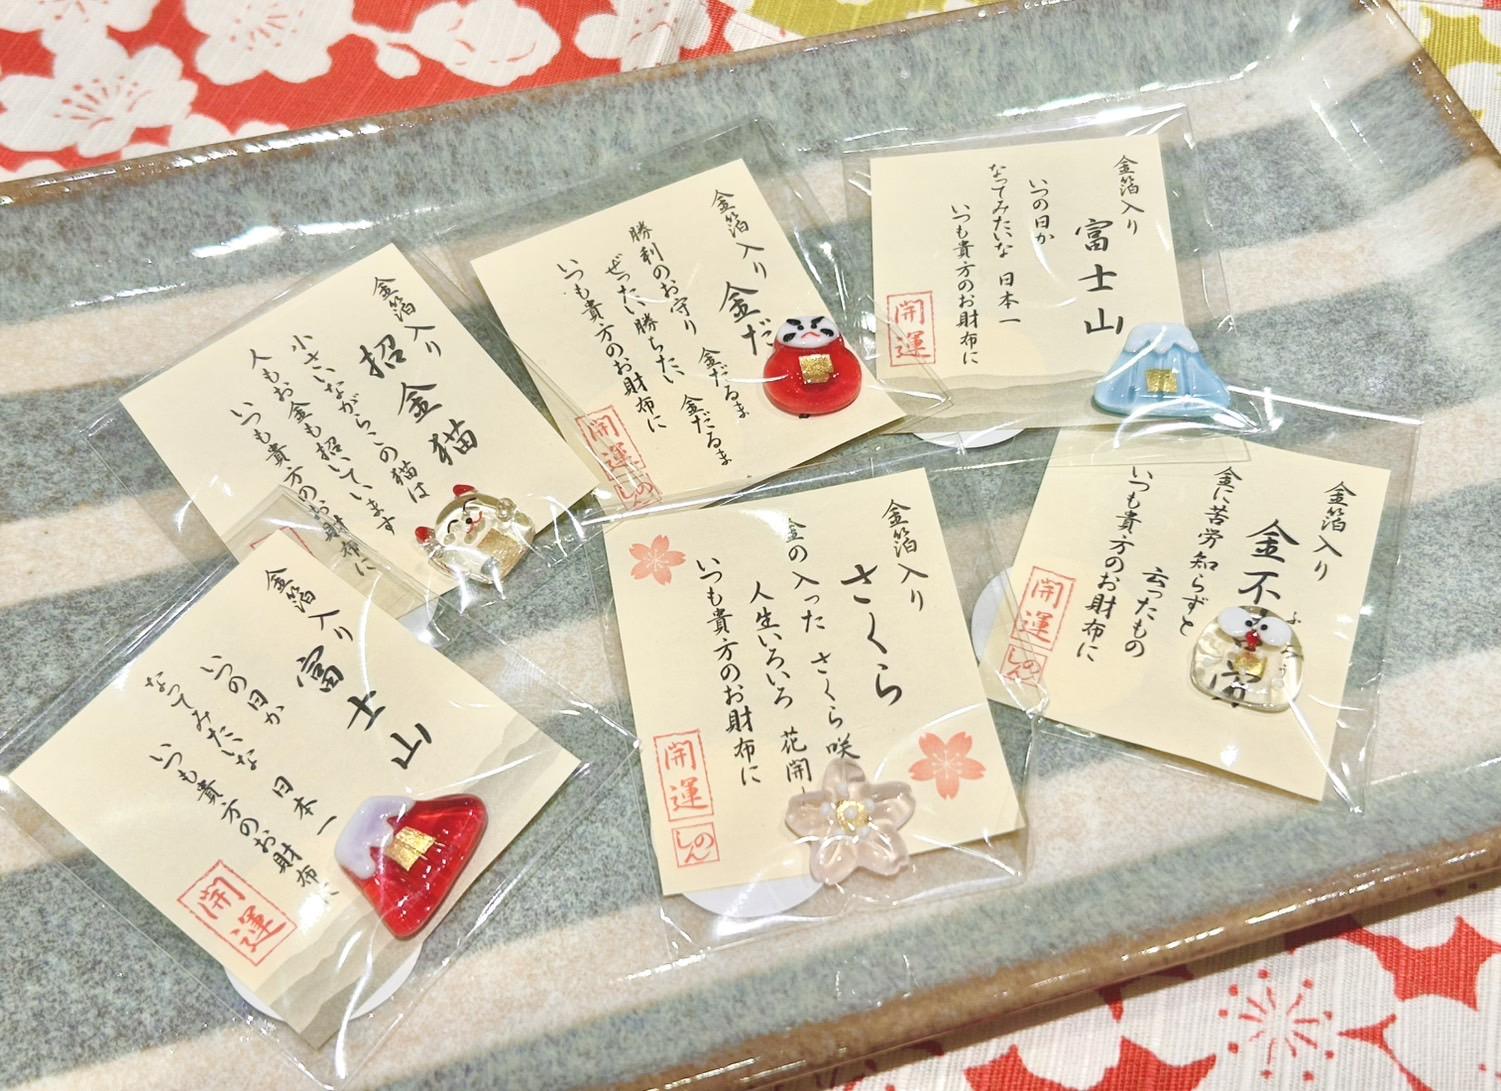 金箔入り
招金猫
小さいながらこの猫は
人もお金も招いています
いつも貴方のお財布に
金箔入り
金だ
金だるま 金だるま
勝利のお守り
ぜったい勝ちたい
いつも貴方のお財布に
開運
しのん
金箔入り
富士山
いつの日か
なってみたいな 日本一
いつも貴方のお財布に
開運
金箔入り
富士山
いつの日か
なってみたいな 日本一
いつも貴方のお財布に
開運
金箔入り
さくら
金の入った さくら咲
人生いろいろ 花開
いつも貴方のお財布に
開運
しのん
金箔入り
金不
金に苦労知らずと
云ったもの
いつも貴方のお財布に
開運
しのん